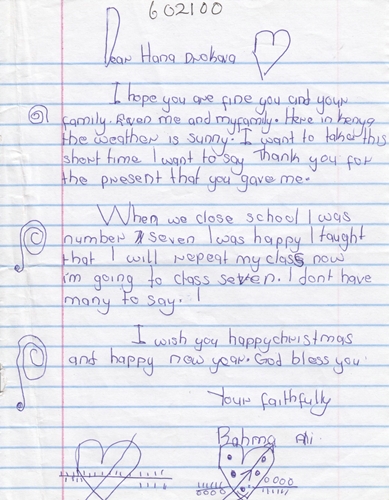 602100
Dear Hana Dvokova
I hope you are fine you and your
family. Even me and my family. Here in kenya
the weather is sunny. I want to take this
short time I want to say Thank you for
the present that you gave me.
When we close school I was
number 7 seven I was happy I taught
that I will repeat my class now
im going to class seven. I dont have
many to say. I
I wish you happy christmas
and happy new year. God bless you.
Your faithfully
Rahma Ali.